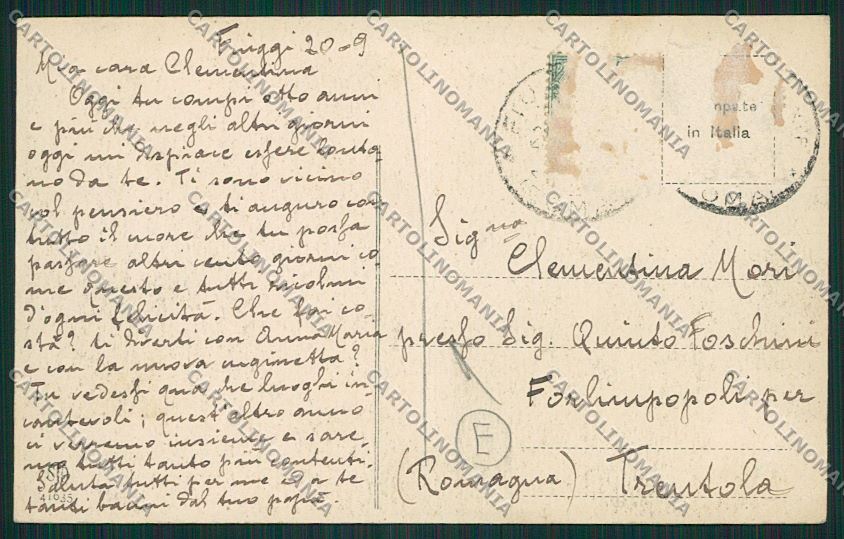 Fiuggi 20-9
Mia cara Clementina
Oggi tu compi otto anni
e più che negli altri giorni
oggi mi dispiace essere lonta-
no da te. Ti sono vicino
col pensiero e ti auguro con
tutto il cuore che tu possa
passare altri cento giorni co-
me questo e tutti ricolmi
d'ogni felicità. Che fai co-
stà? ti diverti con Anna Maria
e con la nuova cuginetta?
Tu vedessi qua che luoghi in-
cantevoli; quest'altro anno
ci verremo insieme e sare-
mo tutti tanto più contenti.
Saluta tutti per me e a te
tanti bacini dal tuo papà.
41035
in Italia
Sig.na
Clementina Mori
presso Sig. Quinto Foschini
Forlimpopoli per
(Romagna) Trentola
E
CARTOLINOMANIA